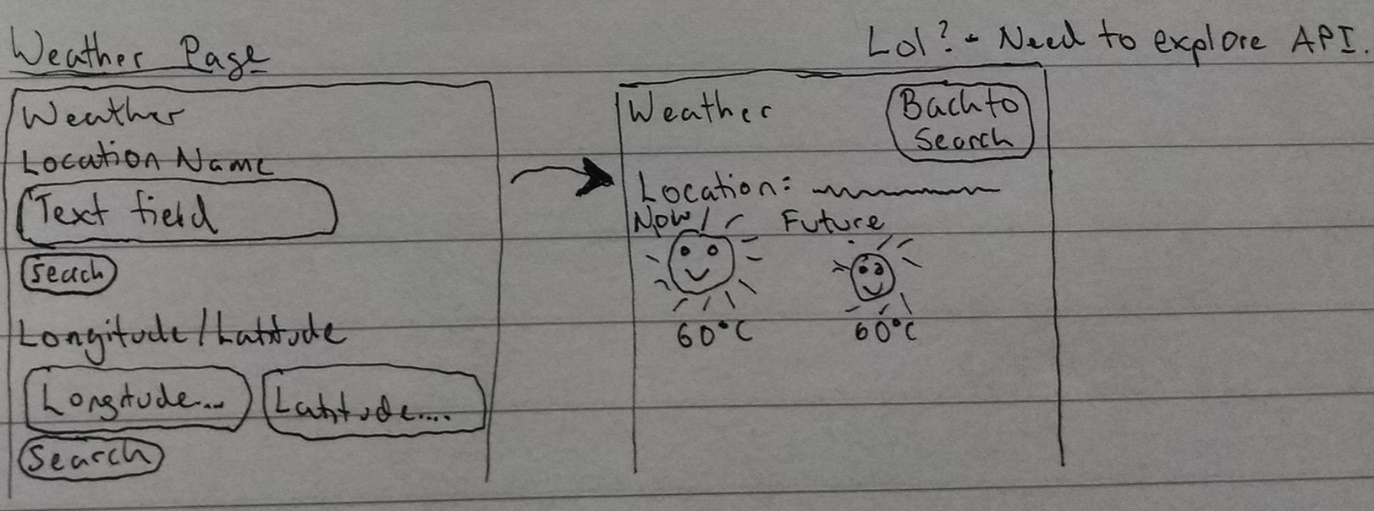 Weather Page
Lol? - Need to explore API.
Weather
Location Name
Text field
Seach
Longitude/Latitude
Longitude... Latitude....
Search
Weather
Back to
Search
Location:
Now Future
60°C 60°C